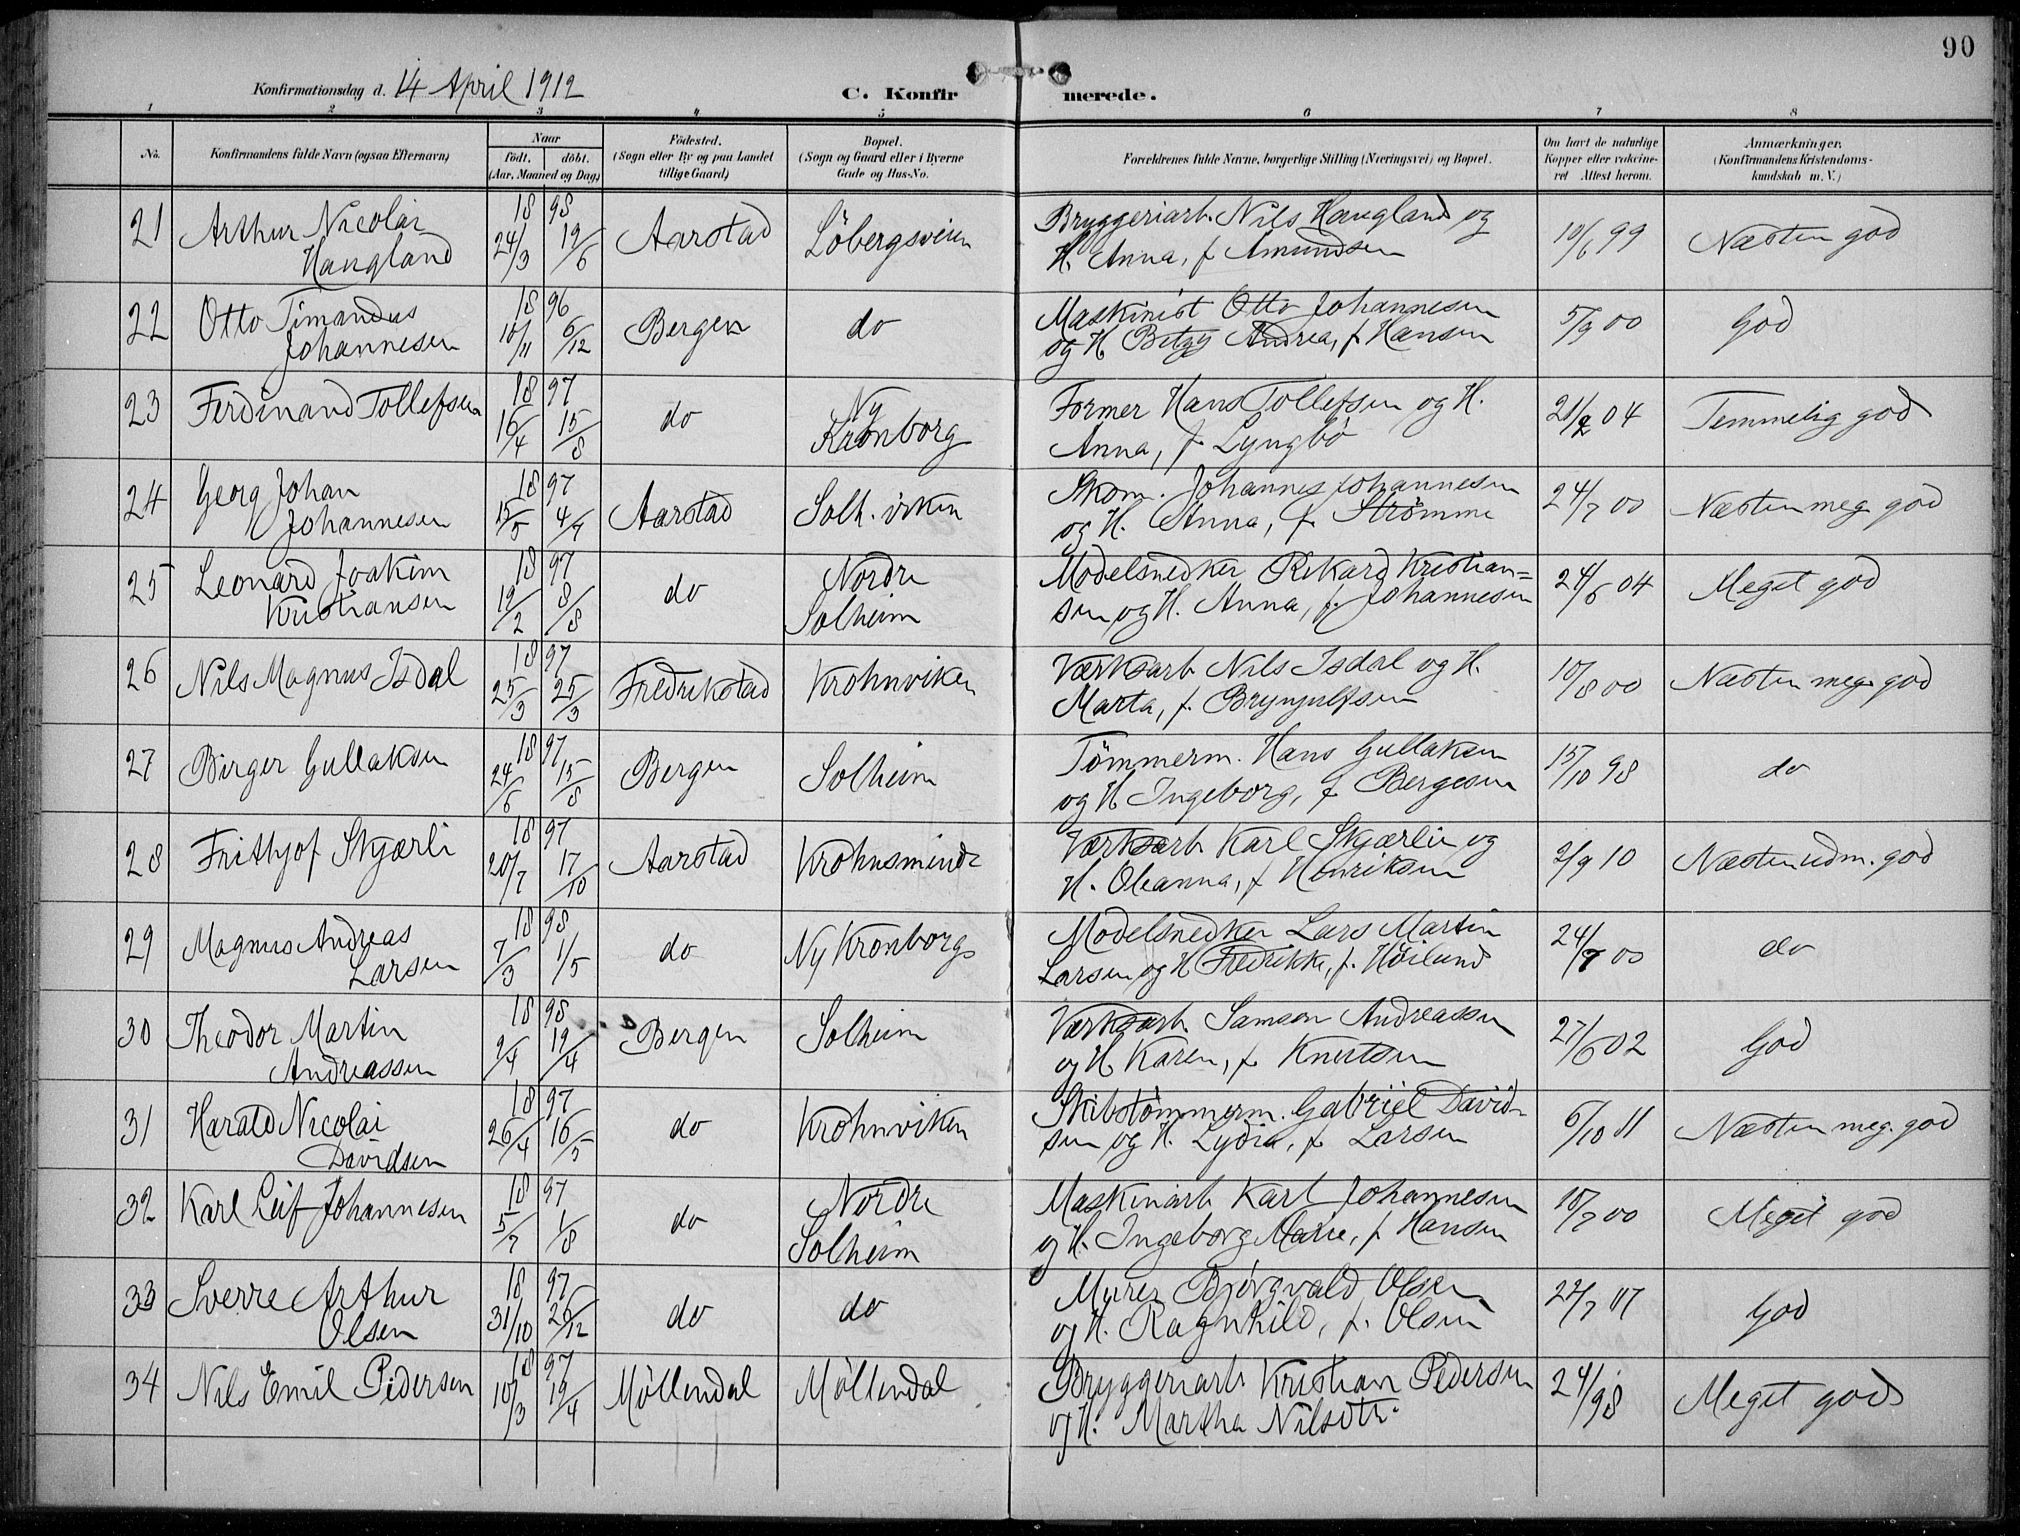 90
Konfirmationsdag d. 14 April 1912
C. Konfirmerede.
1 2 3 4 5 6 7 8
No.
Konfirmandens fulde Navn (ogsaa Efternavn)
Naar
födt. döbt.
(Aar, Maaned og Dag)
Födested.
(Sogn eller By og paa Landet
tillige Gaard)
Bopæl.
(Sogn og Gaard eller i Byerne
Gade og Hus-No.
Forældrenes fulde Navne, borgerlige Stilling (Næringsvei) og Bopæl.
Om havt de naturlige
Kopper eller vakcine-
ret Attest herom.
Anmærkninger.
(Konfirmandens Kristendoms-
kundskab m. V.)
21 Arthur Nicolai 18 98 Bryggeriarb. Nils Haugland og
Haugland 24/3 19/6 Aarstad Löbergsveien H. Anna, f Amundsen 10/6 99 Næsten god
22 Otto Timandus 18 96 Maskinist Otto Johannesen
Johannesen 10/11 6/12 Bergen do og H Betzy Andrea, f. Hansen 5/9 00 God
23 Ferdinand Tollefsen 18 97 Ny Former Hans Tollefsen og H.
16/4 15/8 do Kronborg Anna, f. Lyngbö 21/2 04 Temmelig god
24 Georg Johan 18 97 Skom. Johannes Johannesen
Johannesen 15/5 4/7 Aarstad Solh.viken og H. Anna, f. Strömme 24/7 00 Næsten meg god
25 Leonard Joakim 18 97 Nordre Modelsnedker Rikard Kristian=
Kristiansen 19/2 8/8 do Solheim sen og H. Anna, f. Johannesen 24/6 04 Meget god
26 Nils Magnus Isdal 18 97 Værksarb Nils Isdal og H.
25/3 25/3 Fredrikstad Krohnviken Marta, f. Brynjulfsen 10/8 00 Næsten meg god
27 Birger Gullaksen 18 97 Tömmerm. Hans Gullaksen
24/6 15/8 Bergen Solheim og H Ingeborg, f Bergesen 15/10 98 do
28 Frithjof Skjærli 18 97 Værksarb Karl Skjærli og
20/7 17/10 Aarstad Krohnsminde H. Oleanna, f Henriksen 2/9 10 Næsten udm. god
29 Magnus Andreas 18 98 Modelsnedker Lars Martin
Larsen 7/3 1/5 do Ny Kronborg Larsen og H Fredrikke, f. Höilund 24/7 00 do
30 Theodor Martin 18 98 Værksarb Samson Andreassen
Andreassen 9/4 19/4 Bergen Solheim og H Karen, f Knutsen 27/6 02 God
31 Harald Nicolai 18 97 Skibstömmerm. Gabriel David-
Davidsen 26/4 16/5 do Krohnviken sen og H. Lydia, f Larsen 6/10 11 Næsten meg. god
32 Karl Leif Johannesen 18 97 Nordre Maskinarb Karl Johannesen
5/7 1/8 do Solheim og H. Ingeborg Marie, f Hansen 10/7 00 Meget god
33 Sverre Arthur 18 97 Murer Björgvald Olsen
Olsen 31/10 26/12 do do og H. Ragnhild, f. Olsen 22/7 07 God
34 Nils Emil Pedersen 18 97 Bryggeriarb Kristian Pedersen
10/3 19/4 Möllendal Möllendal og H. Martha Nilsdtr 24/98 Meget god